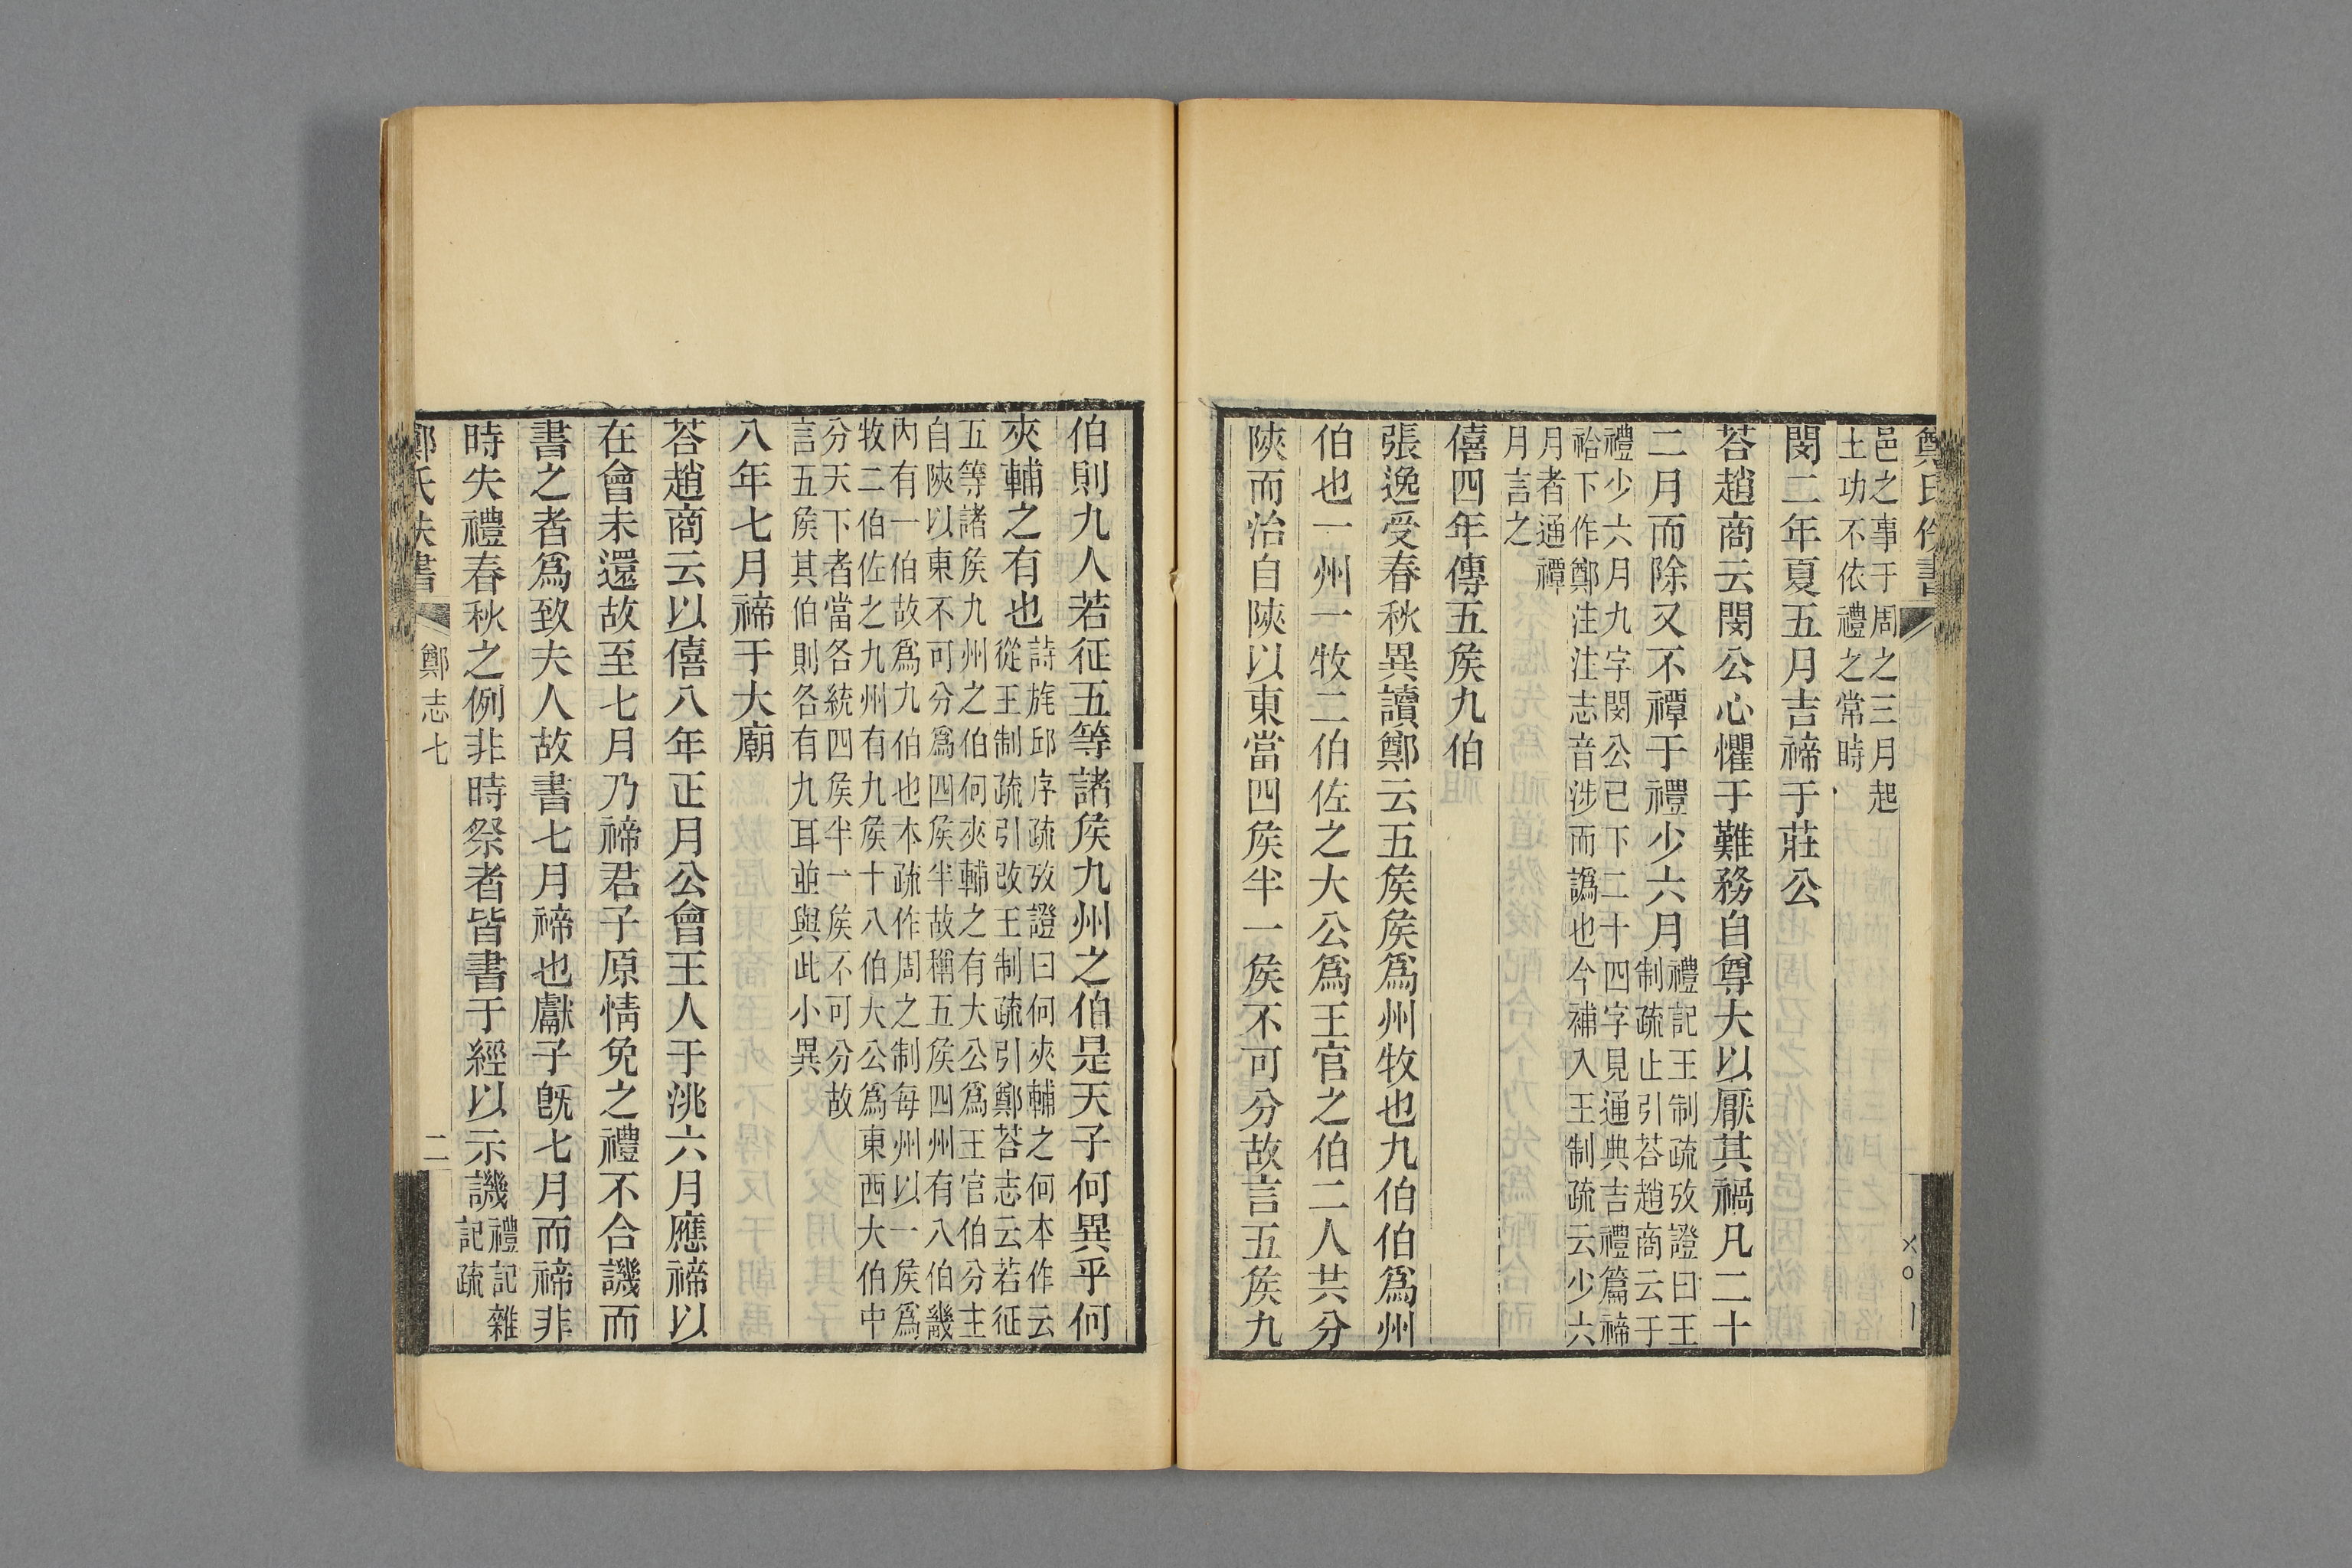 邑之事于周之三月起
土功不依禮之常時
閔二年夏五月吉禘于莊公
荅趙商云閔公心懼于難務自尊大以厭其禍凡二十
二月而除又不禫于禮少六月
禮記王制疏攷證曰王
制疏止引荅趙商云于
禮少六月九字閔公已下二十四字見通典吉禮篇禘
祫下作鄭注注志音涉而譌也今補入王制疏云少六
月者通禫
月言之
僖四年傳五矦九伯
張逸受春秋異讀鄭云五矦矦爲州牧也九伯伯爲州
伯也一州一牧二伯佐之大公爲王官之伯二人共分
陝而治自陝以東當四矦半一矦不可分故言五矦九
伯則九人若征五等諸矦九州之伯是天子何異乎何
夾輔之有也
詩旄邱序疏攷證曰何夾輔之何本作云
從王制疏引改王制疏引鄭荅志云若征
五等諸矦九州之伯何夾輔之有大公爲王官伯分主
自陝以東不可分爲四矦半故稱五矦四州有八伯畿
內有一伯故爲九伯也本疏作周之制每州以一矦爲
牧二伯佐之九州有九矦十八伯大公爲東西大伯中
分天下者當各統四矦半一矦不可分故
言五矦其伯則各有九耳並與此小異
八年七月禘于大廟
荅趙商云以僖八年正月公會王人于洮六月應禘以
在會未還故至七月乃禘君子原情免之禮不合譏而
書之者爲致夫人故書七月禘也獻子旣七月而禘非
時失禮春秋之例非時祭者皆書于經以示譏
禮記雜
記疏
鄭氏佚書
鄭志七
二